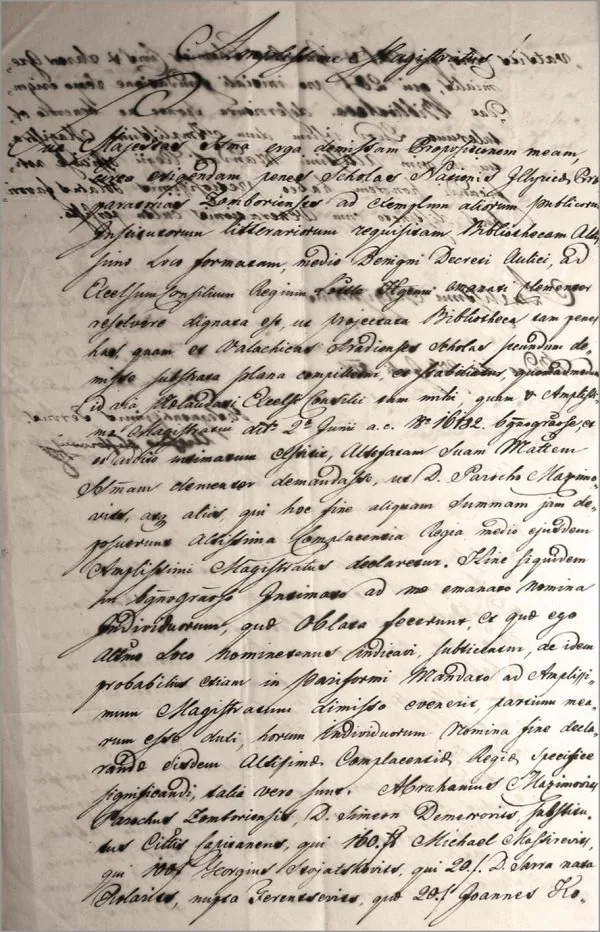 Amplissime Magistratus
Sua Majestas Sma erga demissam Propositionem meam,
circa erigendam penes Scholas Nationis Illyricæ Præ-
paratorias Zomborienses ad exemplum aliorum publicorum
Institutorum litterariorum requisitam Bibliothecam Altis-
simo Loco formatam, medio Benigni Decreti Aulici, ad
Excelsum Consilium Regium emanati clementer
resolvere dignata est, ut projectata Bibliotheca tam penes
has, quam et Valachicas Aradienses Scholas secundum de-
misse substrata plana compiletur, et stabiliatur, quemadmodum
id via Holaudati Excelsi Consilii tam mihi, quam & Amplissi-
mo Magistratui 2a Junii a.c. No 16132. et
ex addito intimatum Altefatam Suam Mattem
Smam clementer demandasse, ut D. Parocho Maximo-
vits, atq alius, qui hoc fine aliquam Summam jam de-
posuerunt Altissima Complacentia Regia medio ejusdem
Amplissimi Magistratus declaretur. Hinc siquidem
in Intimato ad me emanato nomina
Individuorum, quæ Oblata fecerunt, et quæ ego
Altmo Loco nominetenus indicavi, subticeantur, ac idem
probabilius etiam in pariformi Mandato ad Amplissi-
mum Magistratum dimisso evenerit, partium mea-
rum esse duxi, horum Individuorum Nomina fine decla-
randæ eisdem Altissimæ Complacentiæ Regiæ specifice
significandi, talia vero sunt. Abrahamus Maximovits
Parochus Zomboriensis, D. Simeon Demetrovits, substitu-
tus Cittis qui 160. f Michael Massirevits,
qui 100f Georgius Stojatskovits, qui 20 f. D. Sarra nata
nupta Gerentsevits, quæ 20 f Joannes Ko-